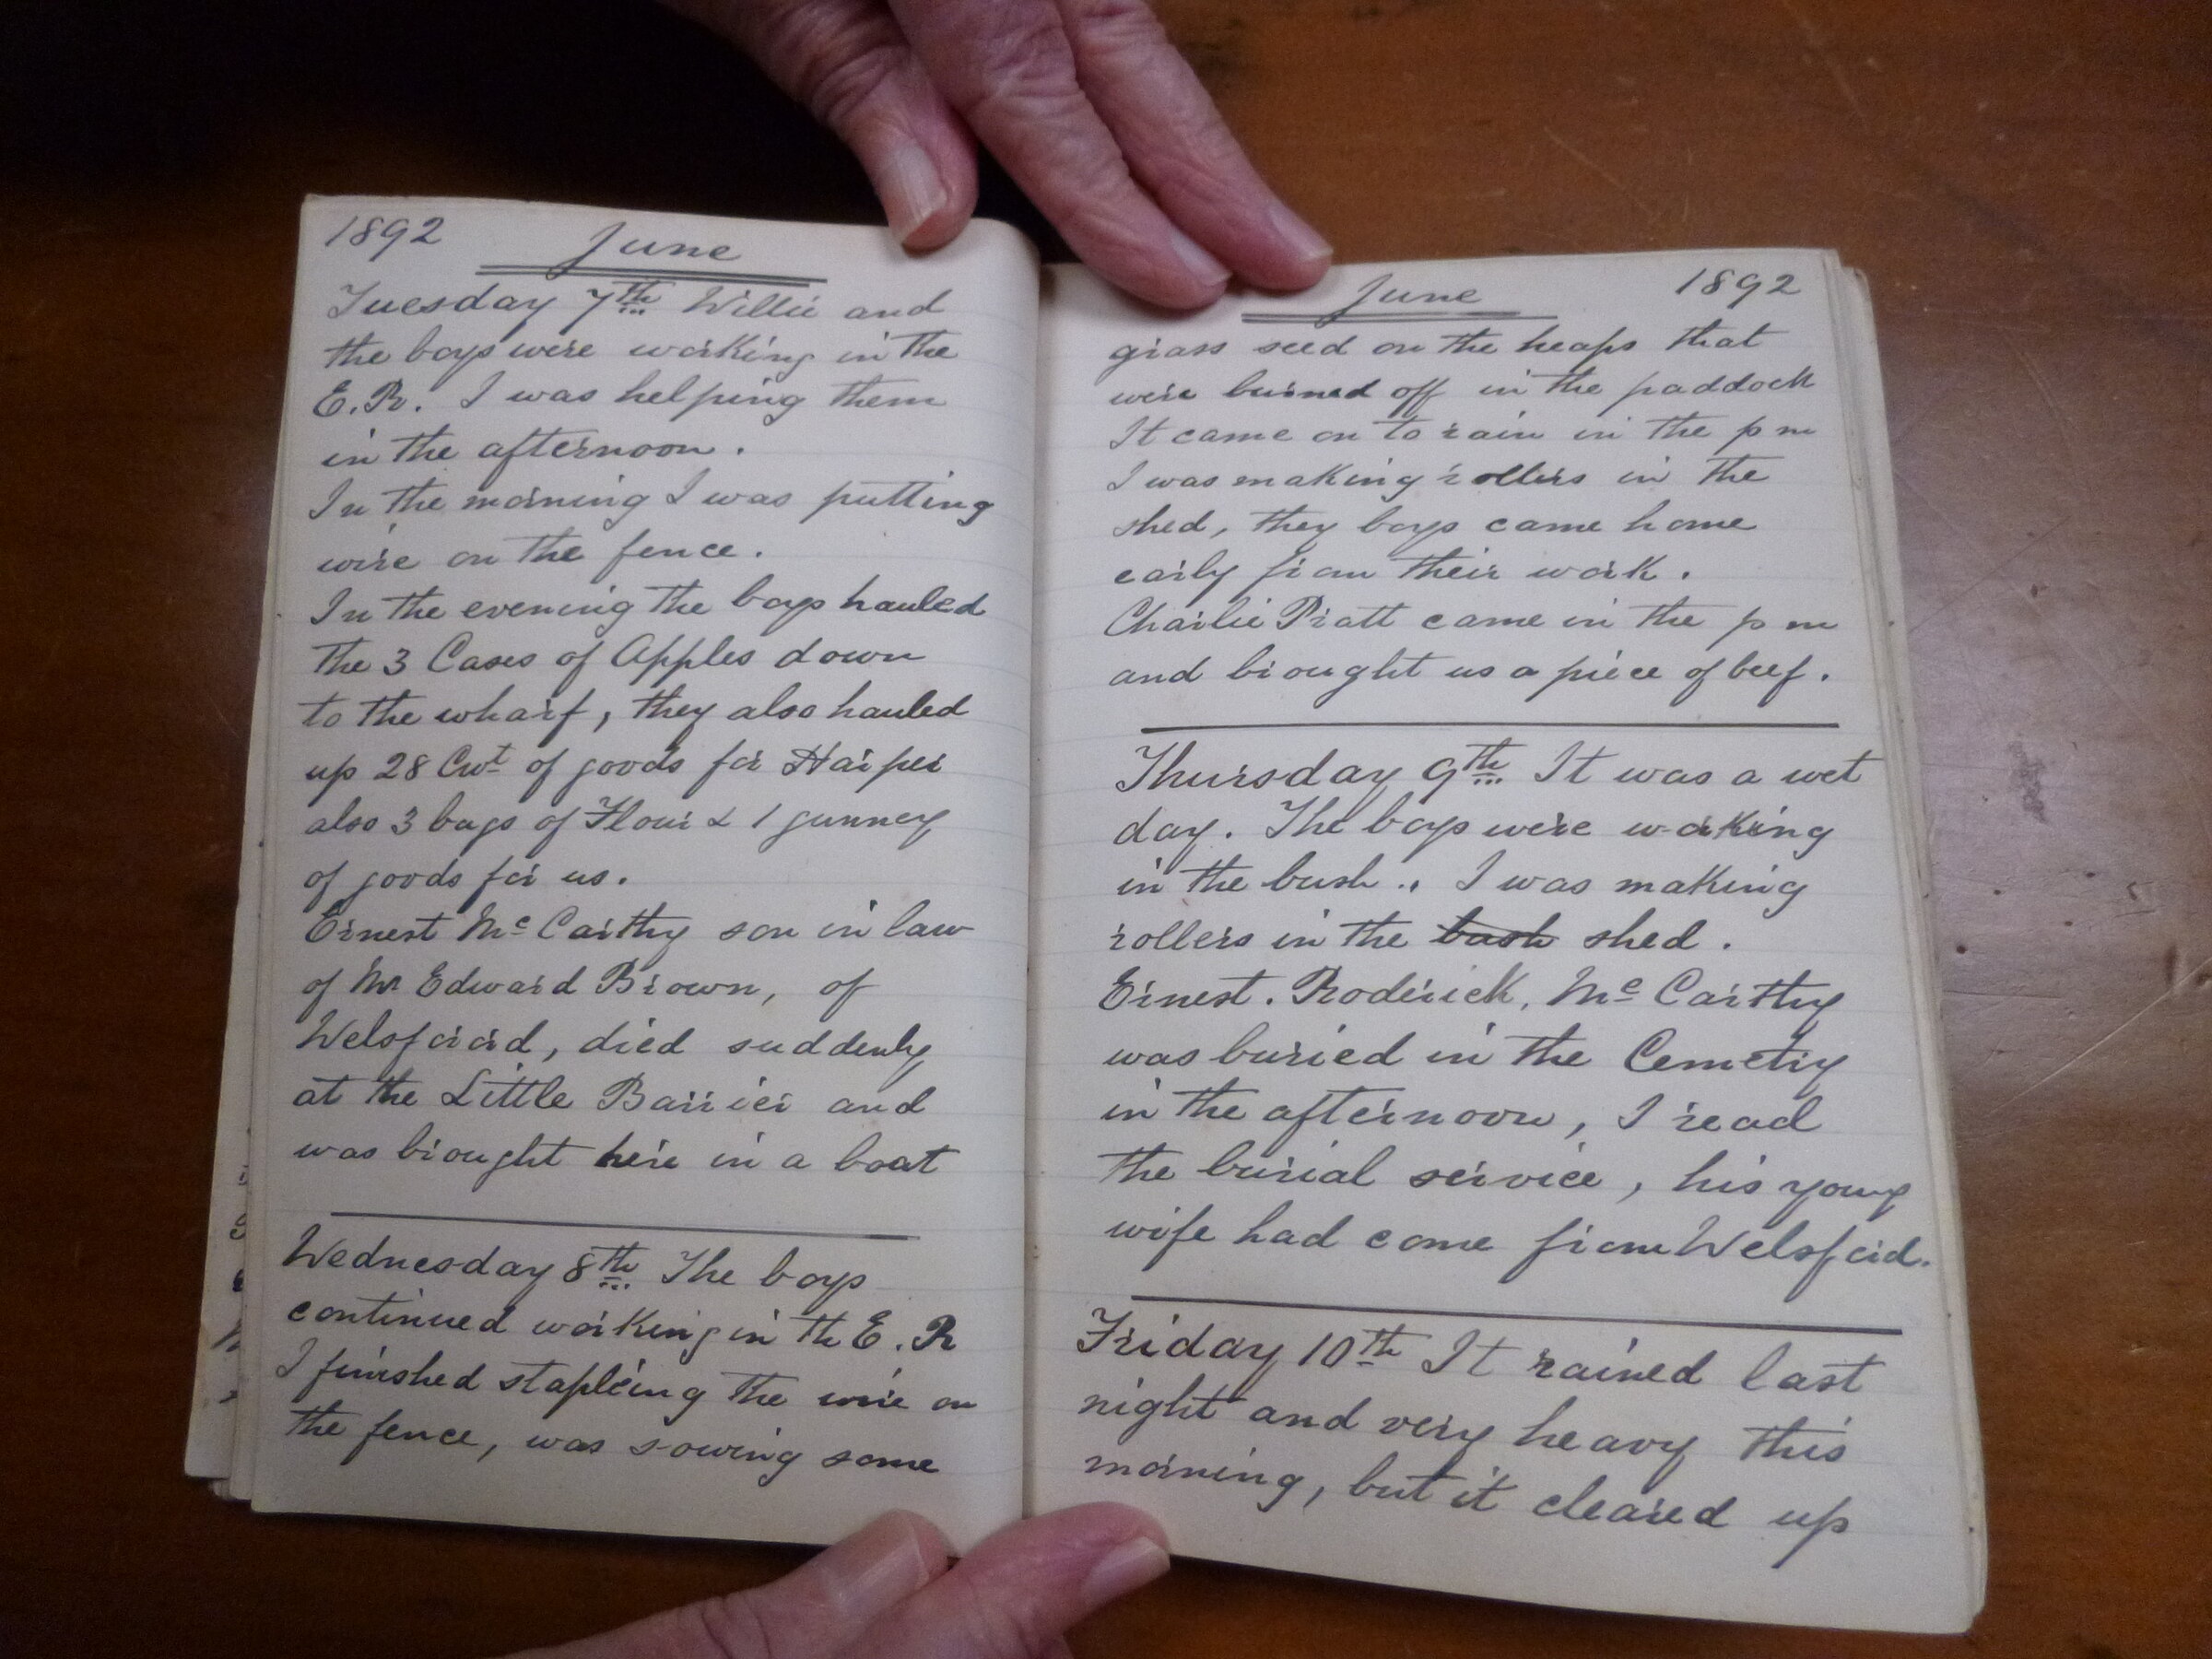 1892
June
Tuesday 7th Willie and
the boys were working in the
E.R. I was helping them
in the afternoon.
In the morning I was putting
wire on the fence.
In the evening the boys hauled
the 3 Cases of Apples down
to the wharf, they also hauled
up 28 Cwt of goods for Harper
also 3 bags of Flour & 1 gunney
of goods for us.
Ernest Mc Carthy son in law
of Mr Edward Brown, of
Welsford, died suddenly
at the Little Barrier and
was brought here in a boat
Wednesday 8th The boys
continued working in th E.R
I finished stapleing the wire on
the fence, was sowing some
June 1892
grass seed on the heaps that
were burned off in the paddock
It came on to rain in the p m
I was making rollers in the
shed, they boys came home
early from their work.
Charlie Pratt came in the p m
and brought us a piece of beef.
Thursday 9th It was a wet
day. The boys were working
in the bush.. I was making
rollers in the bush shed.
Ernest. Roderick. Mc Carthy
was buried in the Cemetry
in the afternoon, I read
the burial service, his young
wife had come from Welsford.
Friday 10th It rained last
night and very heavy this
morning, but it cleared up